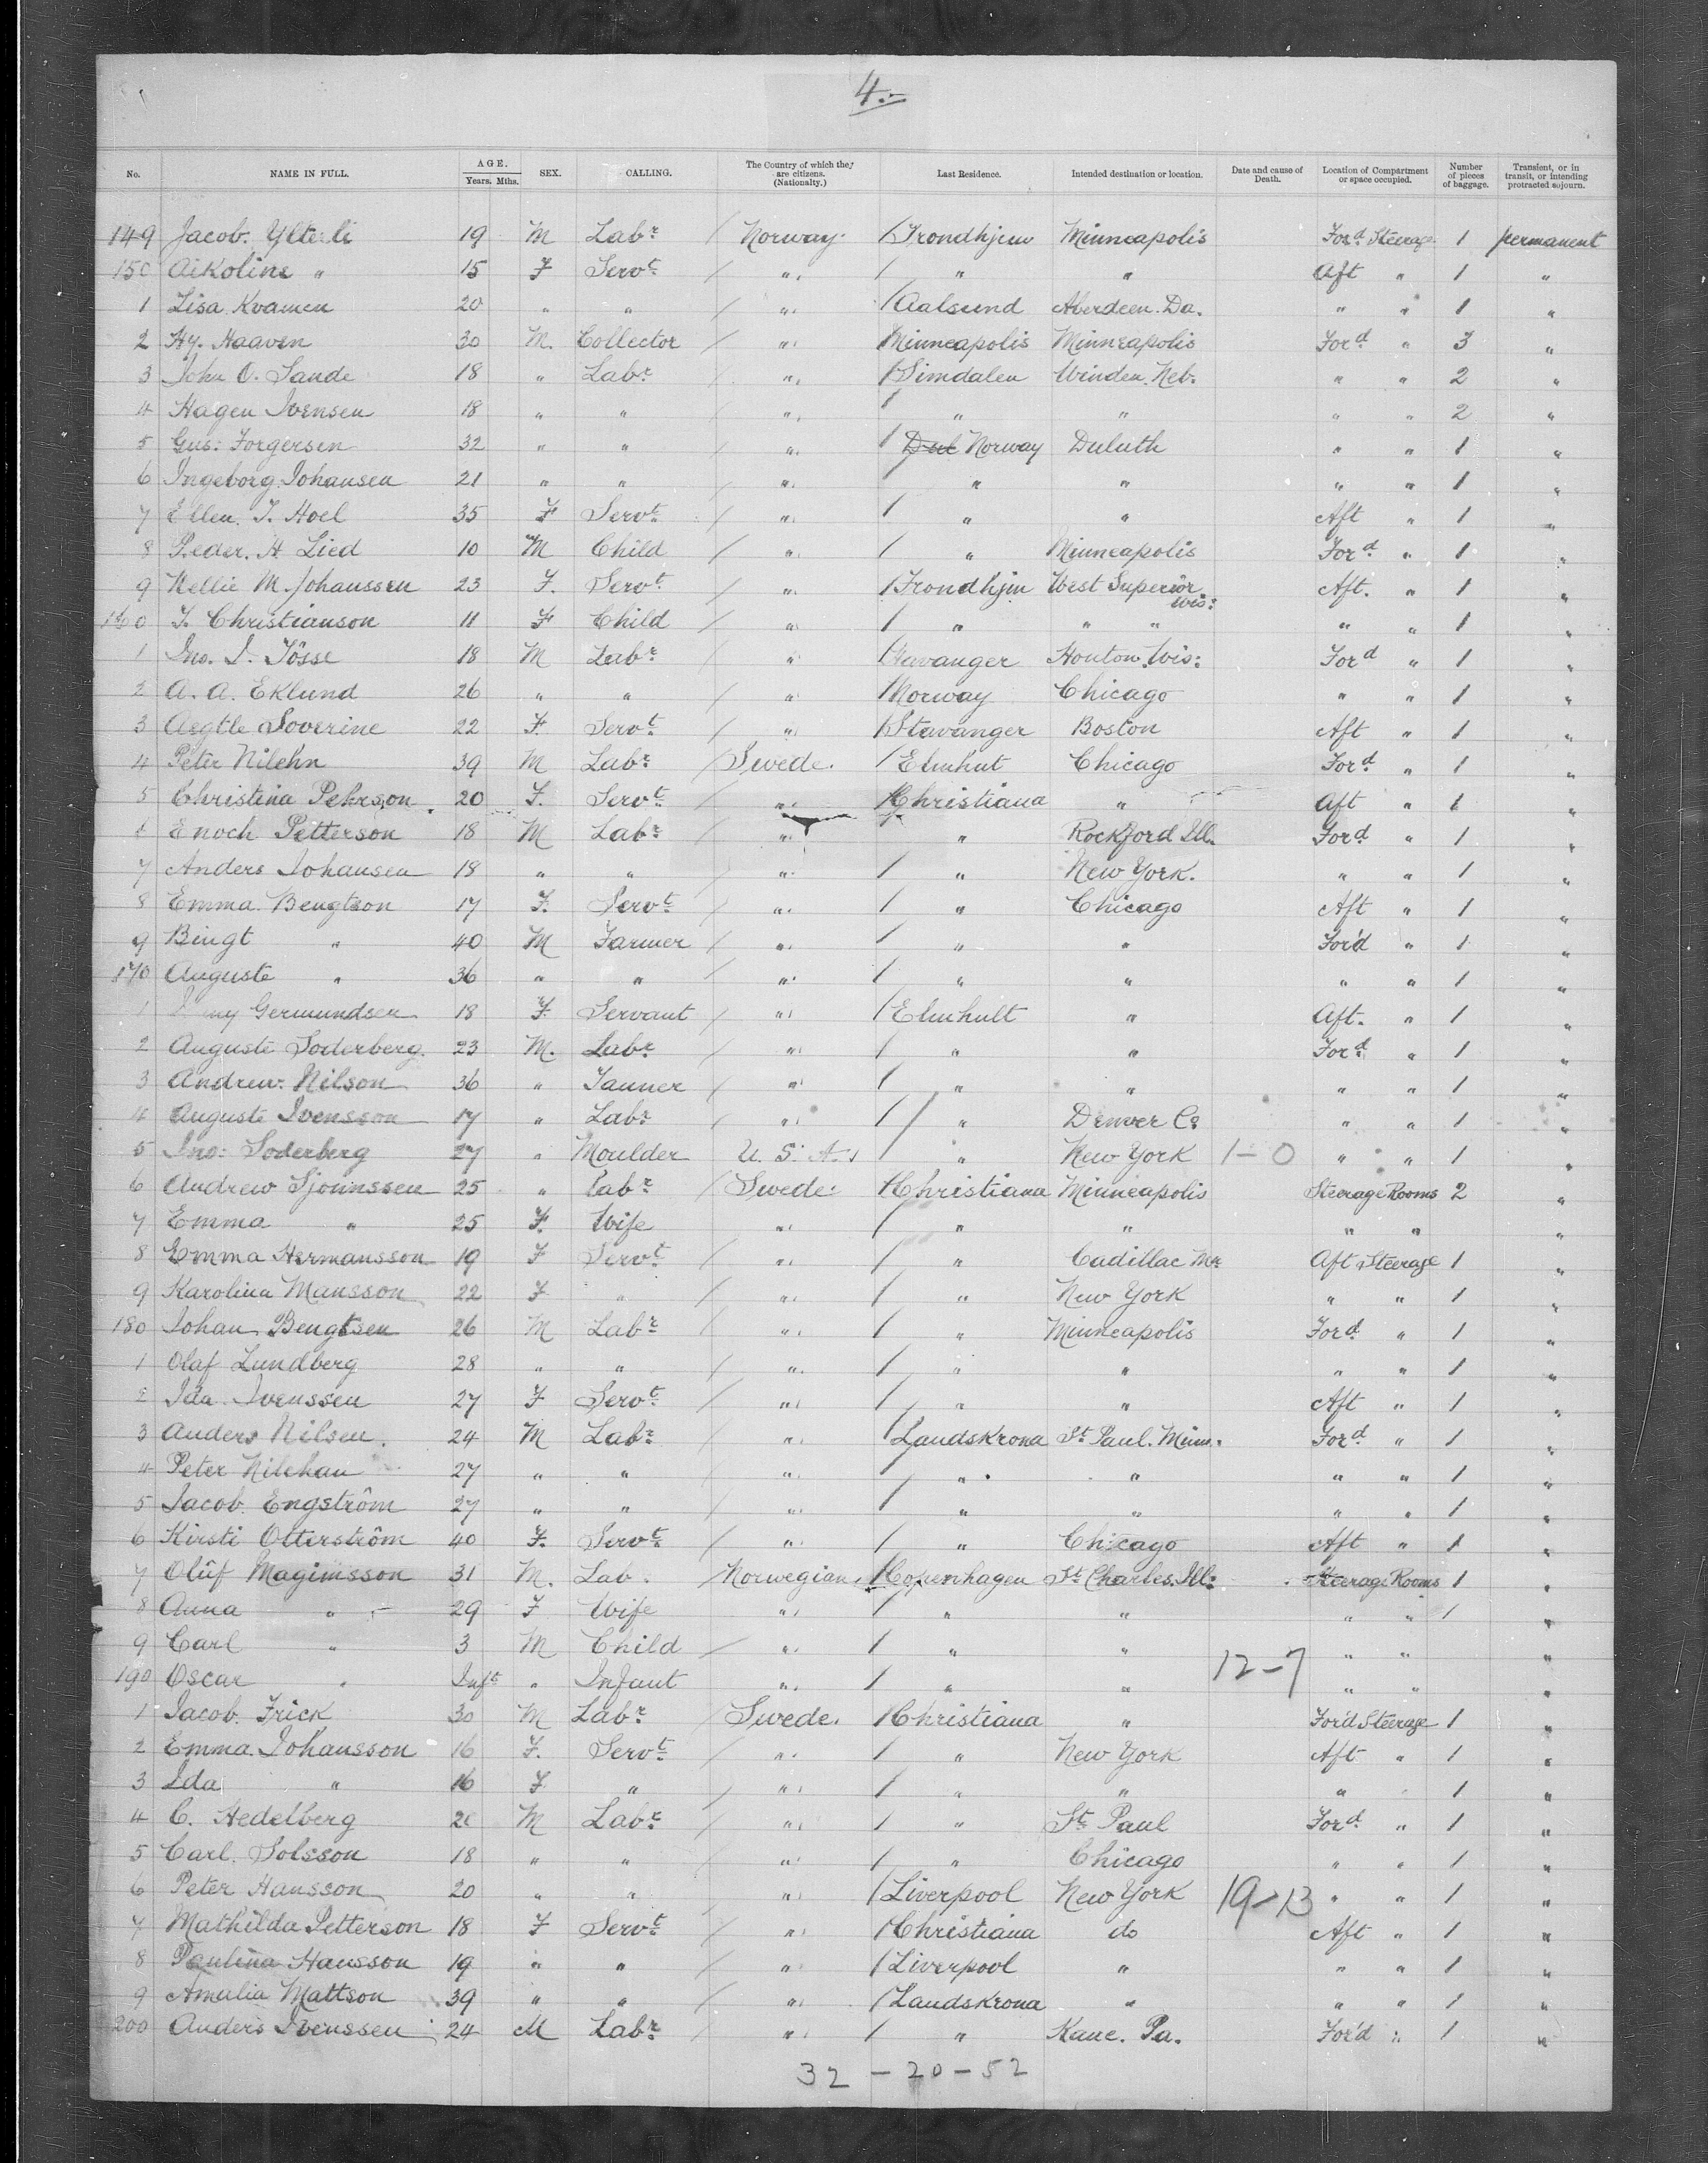 4.-
No. NAME IN FULL. AGE. Years. Mths. SEX. CALLING. The Country of which they are citizens. (Nationality.) Last Residence. Intended destination or location. Date and cause of Death. Location of Compartment or space occupied. Number of pieces of baggage. Transient, or in transit, or intending protracted sojourn.
149 Jacob. 19 M Labr / Norway. / Trondhjem Minneapolis Ford Steerage 1 permanent
150 Aikoline " 15 F Servt / " / " " Aft " 1 "
1 Lisa Kvamen 20 " " / " / Aalsund Aberdeen. Da. " " 1 "
2 Hy. Haaven 30 M. Collector / " Minneapolis Minneapolis Ford " 3 "
3 John O. Sande 18 " Labr / " / Simdalen Winden. Neb. " " 2 "
4 Hagen Ivensen 18 " " / " / " " " " 2 "
5 Gus: Torgersen 32 " " / " / Norway Duluth " " 1 "
6 Ingeborg Johansen 21 " " / " " " " " 1 "
7 Ellen. T. Hoel 35 F Servt / " / " " Aft " 1 "
8 Peder. H Lied 10 M Child / " / " Minneapolis Ford " 1 "
9 Nellie M. Johanssen 23 F. Servt / " / Trondhjm West Superior Wis: Aft. " 1 "
160 T. Christianson 11 F Child / " / " " " " " 1 "
1 Jno. I. Tösse 18 M Labr / " / Stavanger Houton. Wis: Ford " 1 "
2 A. A. Eklund 26 " " / " / Norway Chicago " " 1 "
3 Aegtle Soverine 22 F Servt / " / Stavanger Boston Aft " 1 "
4 Peter Nilehn 39 M Labr / Swede. / Elmhut Chicago Ford " 1 "
5 Christina Pehrson. 20 F. Servt " / Christiana " Aft " 1 "
6 Enoch Petterson 18 M Labr " " Rockford Ill. Ford " 1 "
7 Anders Johansen 18 " " / " / " New York. " " 1 "
8 Emma Bengtson 17 F. Servt / " / " Chicago Aft " 1 "
9 Bingt " 40 M Farmer / " / " " For'd " 1 "
170 Auguste " 36 " " / " / " " " " 1 "
1 Germundsen 18 F. Servant / " / Elmhult " Aft. " 1 "
2 Auguste Soderberg. 23 M. Labr / " / " " Ford " 1 "
3 Andrew. Nilson 36 " Tanner / " / " " " " 1 "
4 Auguste Ivensson 17 " Labr / " / " Denver Co " " 1 "
5 Jno: Soderberg 27 " Moulder U. S. A. / " New York 1-0 " " 1 "
6 Andrew Sjounssen 25 " Labr / Swede. / Christiana Minneapolis Steerage Rooms 2 "
7 Emma " 25 F. Wife / " / " " " " "
8 Emma Hermansson 19 F Servt / " / " Cadillac Aft Steerage 1 "
9 Karolina Mansson 22 F " / " / " New York " " 1 "
180 Johan Bengtsen 26 M Labr / " / " Minneapolis Ford " 1 "
1 Olaf Lundberg 28 " " / " / " " " " 1 "
2 Ida Ivenssen 27 F Servt / " / " " Aft " 1 "
3 Anders Nilsen. 24 M Labr / " / Landskrona St Paul. Minn. Ford " 1 "
4 Peter Nilehan 27 " " / " / " " " " 1 "
5 Jacob. Engström 27 " " / " / " " " " 1 "
6 Kirsti Otterström 40 F. Servt / " / " Chicago Aft " 1 "
7 Olüf Maginsson 31 M. Lab. / Norwegian. / Copenhagen St Charles. Ill: Steerage Rooms 1 "
8 Anna " 29 F Wife / " / " " " " 1 "
9 Carl " 3 M Child / " / " " " " "
190 Oscar " Inft " Infant / " / " " 12-7 " " "
1 Jacob. Frick 30 M Labr / Swede. / Christiana " For'd Steerage 1 "
2 Emma Johansson 16 F. Servt / " / " New York Aft " 1 "
3 Ida " 16 F " / " / " " " " 1 "
4 C. Hedelberg M Labr / " / " St Paul Ford " 1 "
5 Carl. Solsson 18 " " / " / " Chicago " " 1 "
6 Peter Hansson 20 " " / " / Liverpool New York 19-13 " " 1 "
7 Mathilda Petterson 18 F Servt / " / Christiana do Aft " 1 "
8 Paulina Hansson 19 " " / " / Liverpool " " " 1 "
9 Amalia Mattson 39 " " / " / Landskrona " " " 1 "
200 Anders Ivenssen 24 M Labr / " / " Kane. Pa. For'd " 1 "
32 - 20 - 52